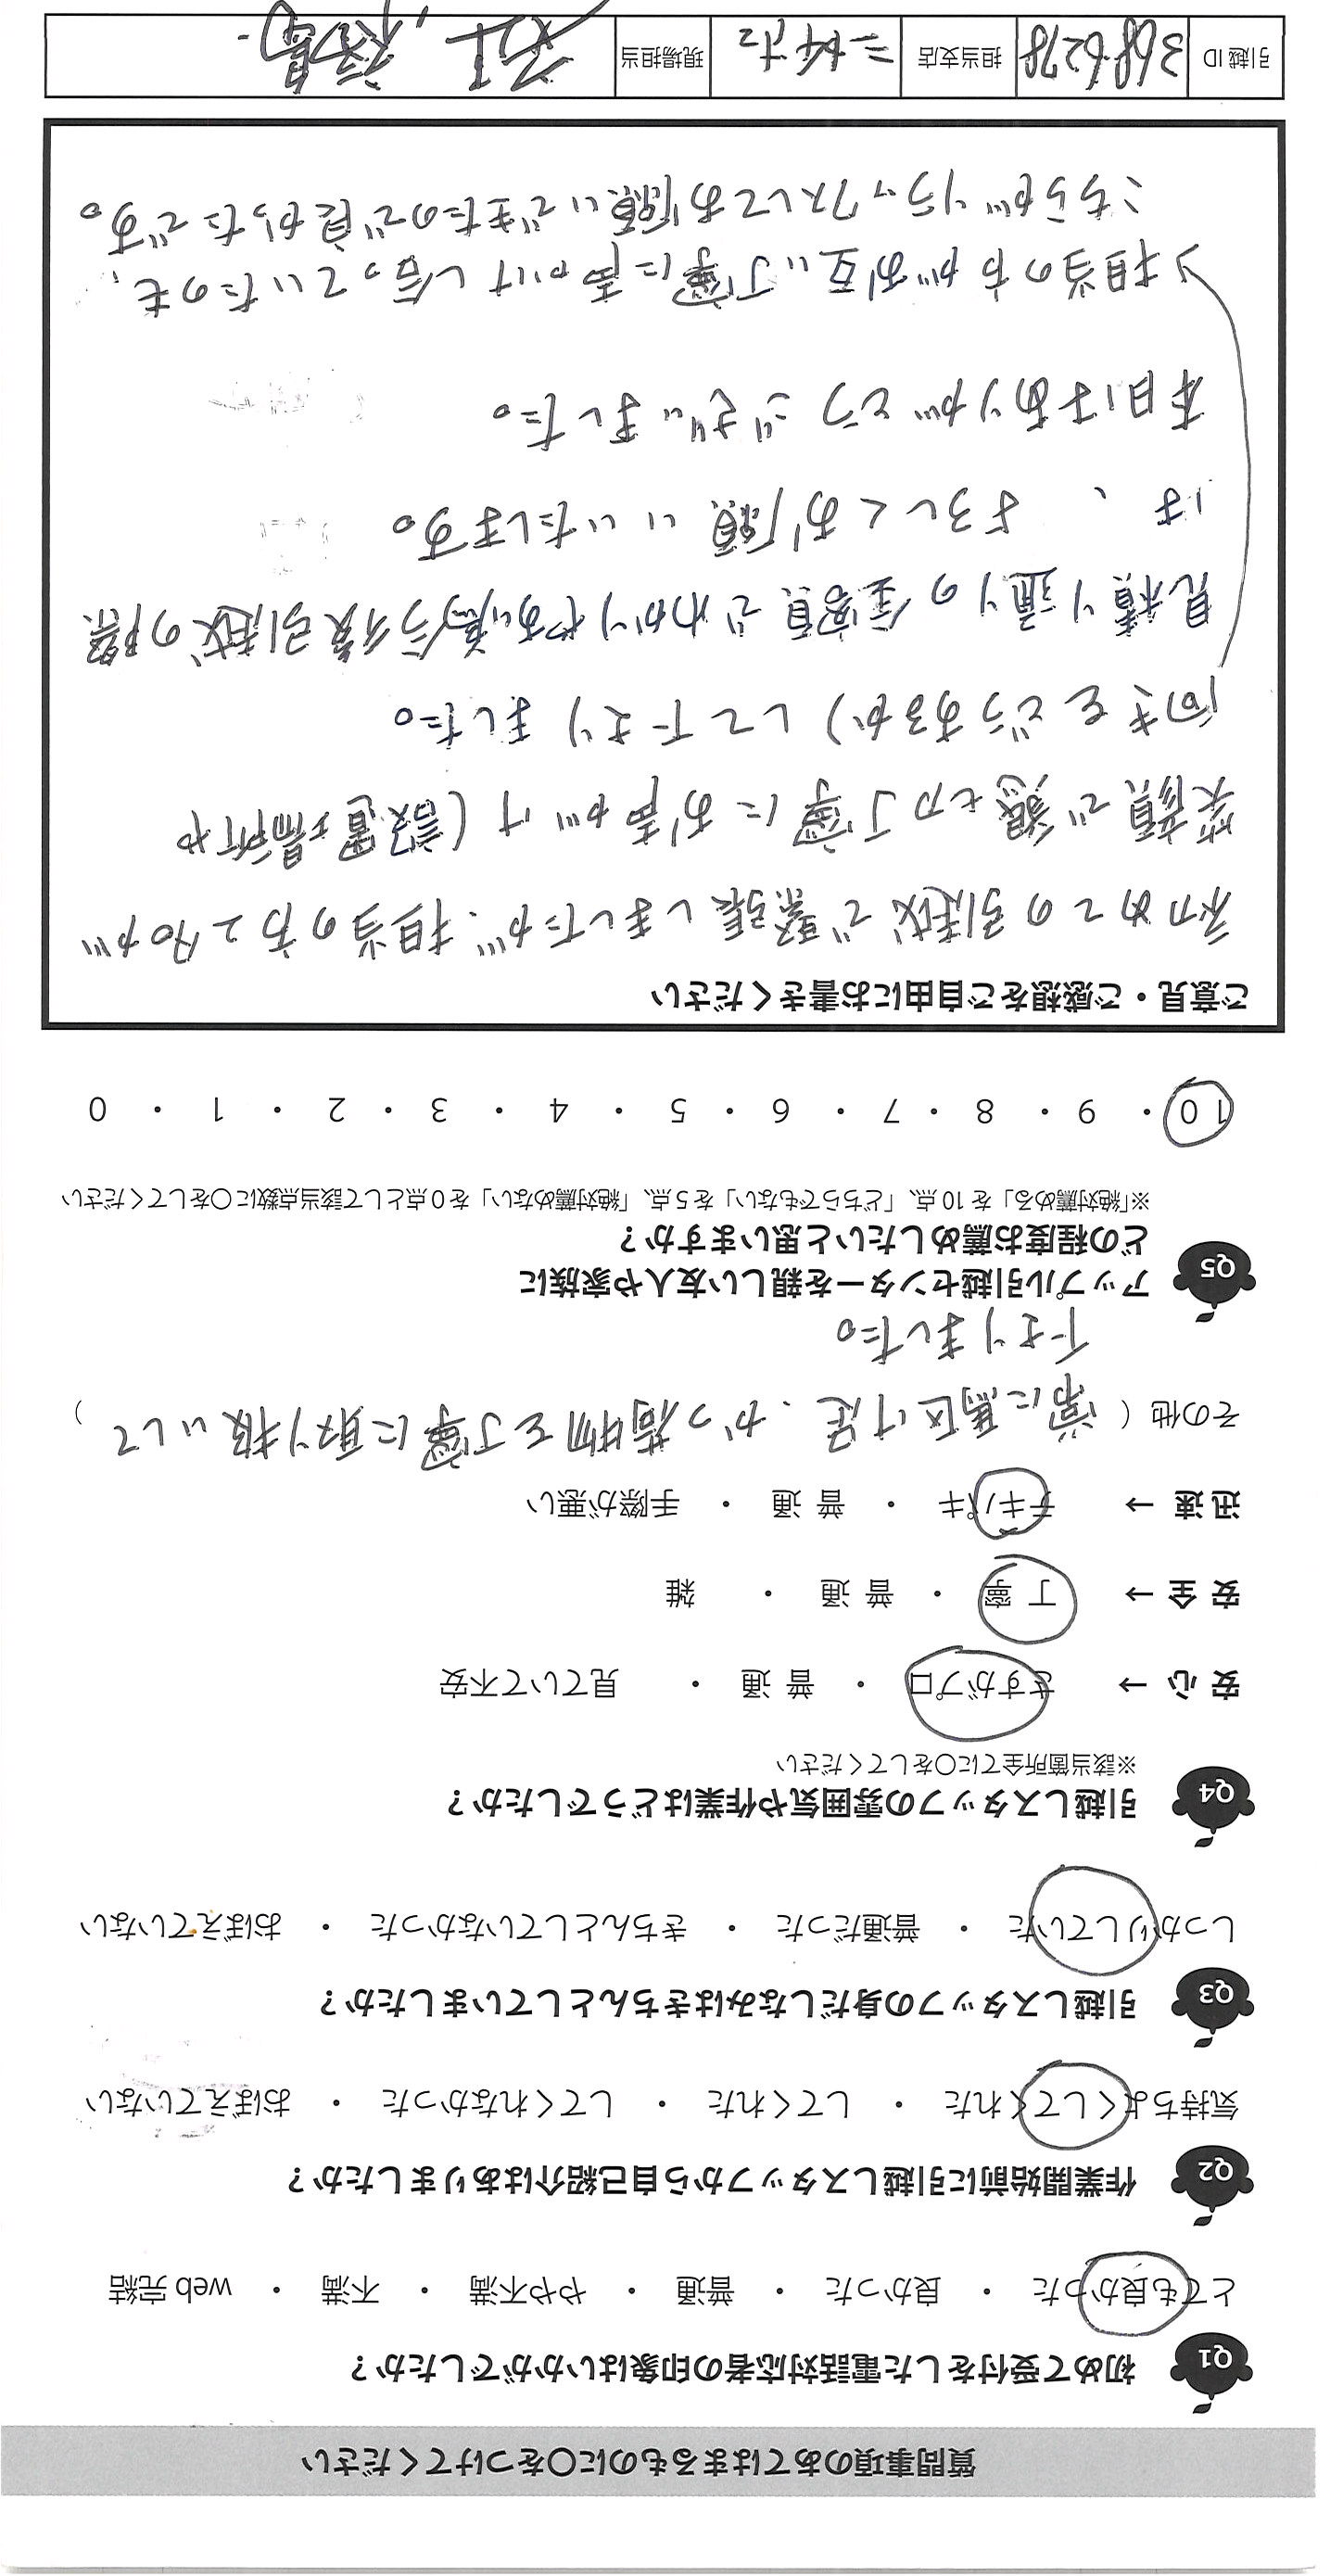 質問事項のあてはまるものに〇をつけてください
Q1 初めて受付をした電話対応者の印象はいかがでしたか？
とても良かった ・ 良かった ・ 普通 ・ やや不満 ・ 不満 ・ web 完結
Q2 作業開始前に引越しスタッフから自己紹介はありましたか？
気持ちよくしてくれた ・ してくれた ・ してくれなかった ・ おぼえていない
Q3 引越しスタッフの身だしなみはきちんとしていましたか？
しっかりしていた ・ 普通だった ・ きちんとしていなかった ・ おぼえていない
Q4 引越しスタッフの雰囲気や作業はどうでしたか？
※該当箇所全てに〇をしてください
安 心 → さすがプロ ・ 普 通 ・ 見ていて不安
安 全 → 丁 寧 ・ 普 通 ・ 雑
迅 速 → テキパキ ・ 普 通 ・ 手際が悪い
その他 ( 常に駆け足、かつ荷物を丁寧に取り扱いして )
下さりました。
Q5 アップル引越センターを親しい友人や家族に
どの程度お薦めしたいと思いますか？
※「絶対薦める」を 10 点、「どちらでもない」を 5 点、「絶対薦めない」を 0 点として該当点数に〇をしてください
10 ・ 9 ・ 8 ・ 7 ・ 6 ・ 5 ・ 4 ・ 3 ・ 2 ・ 1 ・ 0
ご意見・ご感想をご自由にお書きください
初めての引越で緊張しましたが、担当の方2名が
笑顔で親切丁寧にお声がけ(設置場所や
向きをどうするか)して下さりました。
見積り通りの金額でわかりやすい為今後引越の際
は、よろしくお願いいたします。
本日はありがとうございました。
担当の方がお互い丁寧に声かけし合っていたのも、
こちらがリラックスしてお願いできたので良かったです。
引越 ID 3686278 担当支店 現場担当